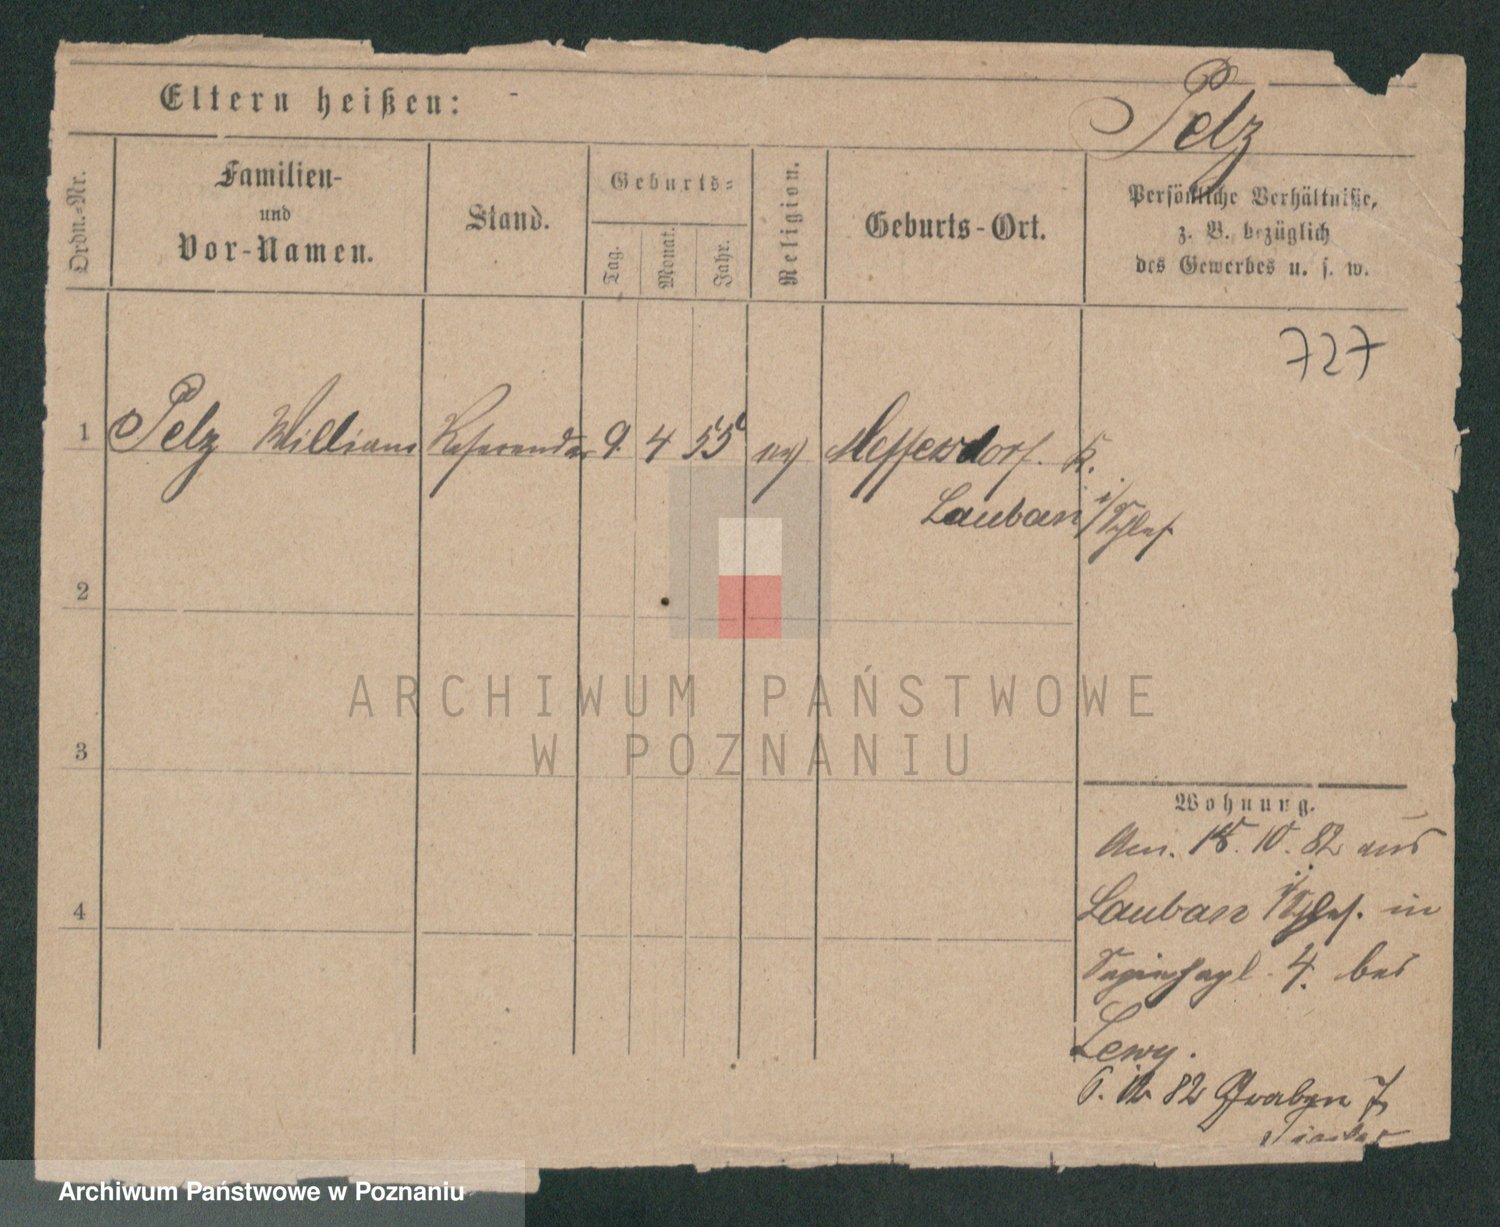 Eltern heißen:
Pelz
Ordn.-Nr.
Familien-
und
Vor-Namen.
Stand.
Geburts-
Tag.
Monat.
Jahr.
Religion.
Geburts-Ort.
Persönliche Verhältniße,
z. B. bezüglich
des Gewerbes u. s. w.
727
1 Pelz William Referendar 9. 4 55 ev Meffersdorf. K.
Lauban i/Schles.
2
3
4
ARCHIWUM PAŃSTWOWE
W POZNANIU
Wohnung.
10. 82 aus
Lauban i/Schles. in
4. bei
Lewy.
82 Graben 7
Archiwum Państwowe w Poznaniu